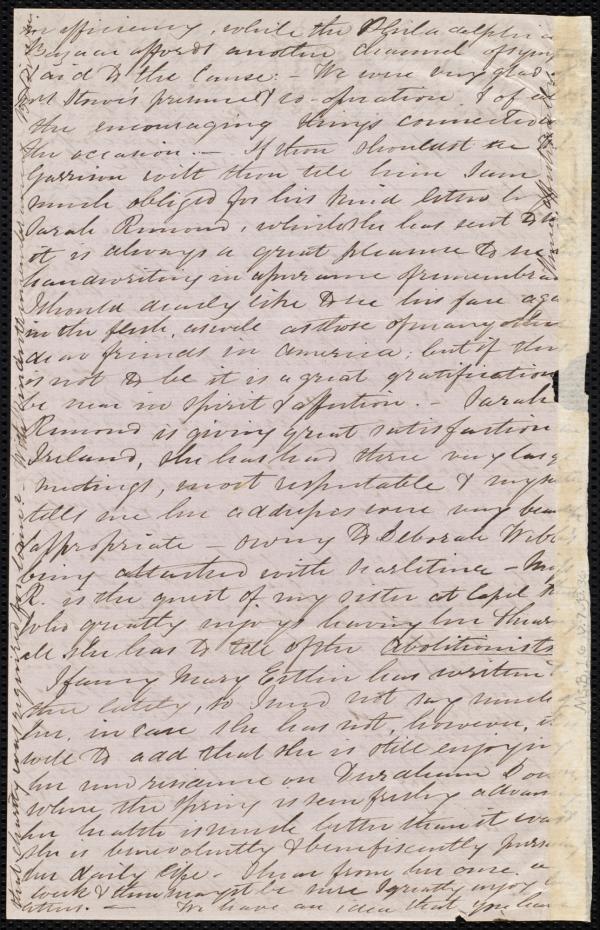 in efficiency, while the Philadelphia
Bazaar affords another channel of symp
& aid to the Cause. – We were very glad
Stowe's presence & co-operation & of
the encouraging things connected
the occasion. – If thou shouldst see
Garrison wilt thou tell him I am
much obliged for his kind letter by
Sarah Remond, which she has sent to
it is always a great pleasure to see
handwriting in assurance of remembra
I should dearly like to see his face aga
in the flesh, as well as those of many other
dear friends in America; but if this
is not to be it is a great gratification
be near in spirit & affection. – Sarah
Remond is giving great satisfaction
Ireland, she has had three very large
meetings, most respectable & my
tells me her addresses were very beau
appropriate – owing to Deborah Webb
being attacked with scarletina – Miss
R. is the guest of my sister at Capel
who greatly enjoys having her & hear
all she has to tell of the Abolitionists
I fancy Mary Estlin has written
thee lately, so I need not say much
her, in case she has not, however,
will to add that she is still enjoyin
her residence on Durdham Dow
where the Spring is seen freshly advan
her health is much better than it was
she is benevolently & beneficently pursu
her daily life – I hear from her once a
week & thou mayst be sure I greatly enjoy
letters. – We have an idea that you